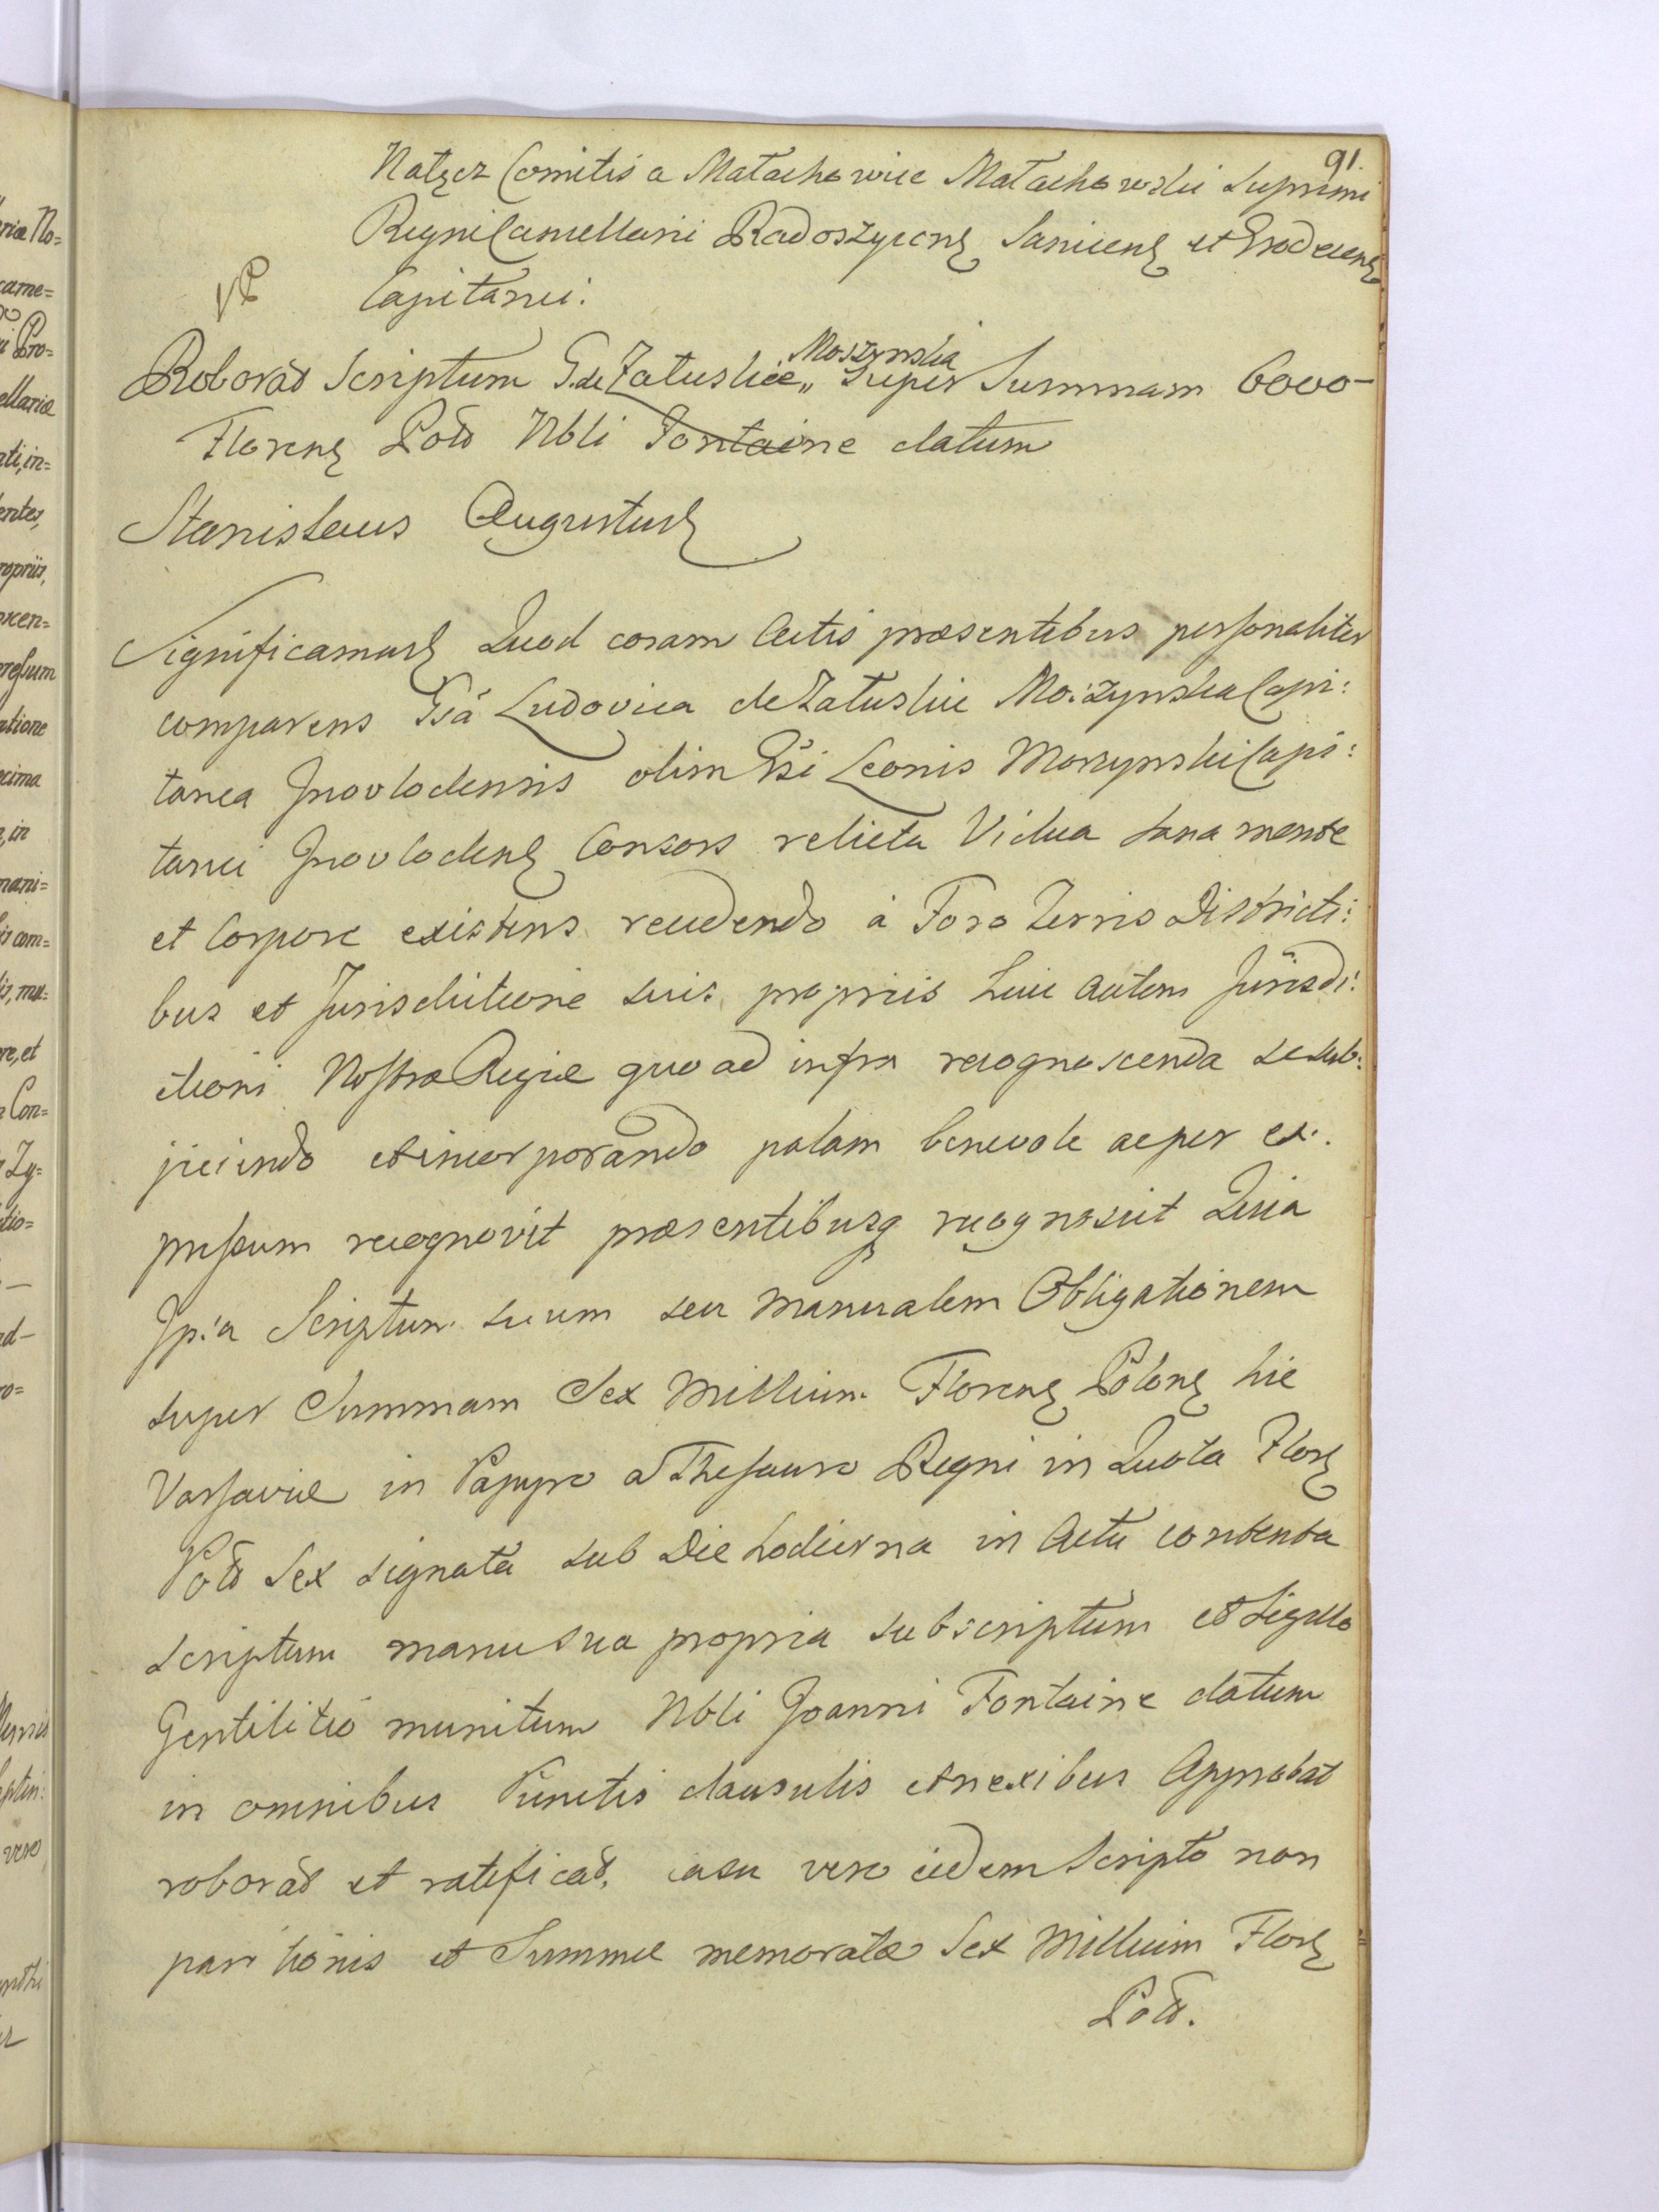 91.
Nałęcz Comitis a Małachowice Małachowski Supremi
Regni Cancellarii Radoszycens Sanicens et Grodecens
Capitanei.
Roborat Scriptum G. de Załuskie „ Moszynska Super Summam 6000-
Florens Pol Nbli Fontaine datum
Stanislaus Augustus
Significamus Quod coram Actis præsentibus personaliter
comparens Gsa Ludovica de Załuskie Moszynska Capi:
tanea Inovlodensis olim Gsi Leonis Moszynski Capi:
tanei Inovlodens Consors relicta Vidua sana mente
et Corpore existens recedendo à Foro Terris Districti:
bus et Jurisdictione suis propriis huic autem Jurisdi:
ctioni Nostræ Regiæ quo ad infra recognoscenda se sub:
jiciendo et incorporando palam benevole ac per ex:
pressum recognovit præsentibusq recognoscit Quia
Ip:a Scriptum suum seu manualem Obligationem
super Summam Sex Millium Florens Polons hic
Varsaviæ in Papyro a Thesauro Regni in Quota Flors
Pol Sex signata sub Die hodierna in Actu contenta
scriptum manu sua propria subscriptum et Sigillo
Gentilitio munitum Nbli Joanni Fontaine datum
in omnibus Punctis clausulis et nexibus Approbat
roborat et ratificat, casu vero eidem Scripto non
paritionis et Summæ memoratæ Sex Millium Flors
Pol.
riæ No=
came=
ri Pro=
ellariæ
nti, in=
entes,
ropriis,
ocen=
ressum
atione
ecima
, in
mani=
is com=
re, et
Con=
Zy=
atio=
ad-
ro=
vero